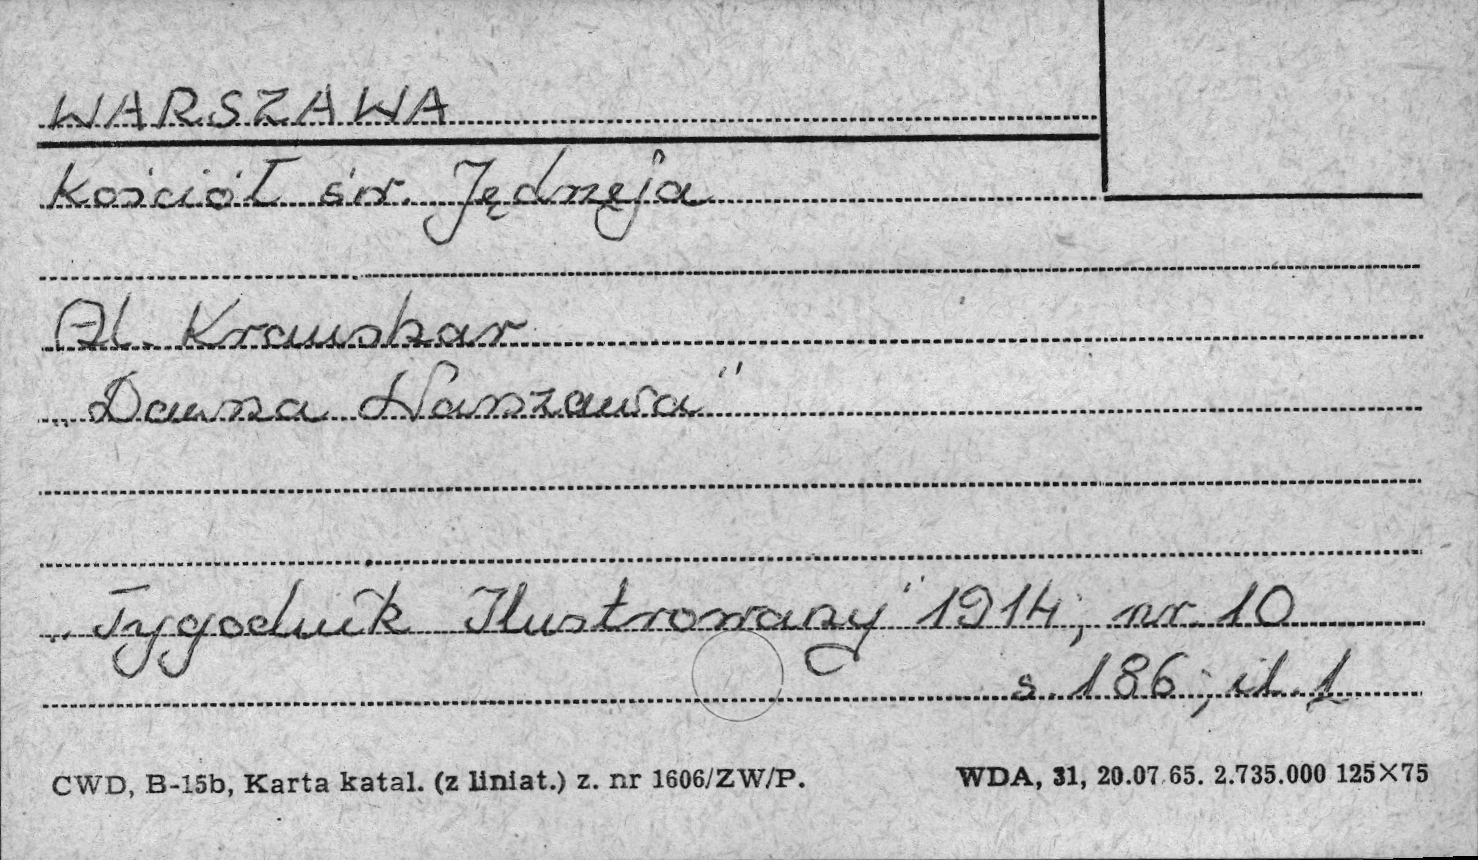 WARSZAWA
Kościół św. Jędrzeja
Al. Kraushar
„Dawna Warszawa"
„Tygodnik Ilustrowany" 1914, nr. 10
s. 186; il. 1
CWD, B-15b, Karta katal. (z liniat.) z. nr 1606/ZW/P.
WDA, 31, 20.07.65. 2.735.000 125×75